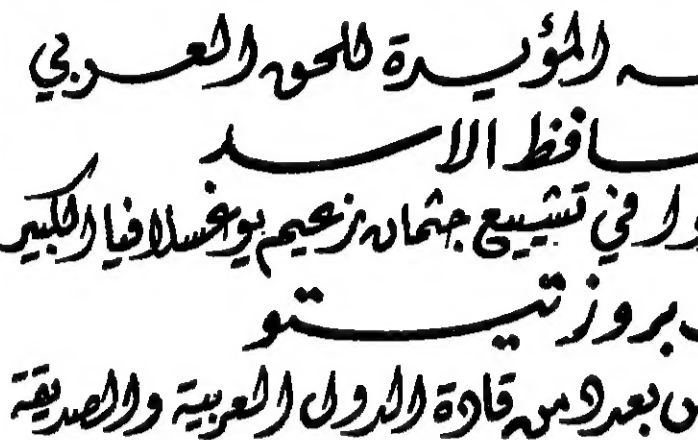 ـه المؤيدة للحق العربي
ـافظ الاسد
وا في تشييع جثمان زعيم يوغسلافيا الكبير
بروز تيتو
بعدد من قادة الدول العربية والصديقة